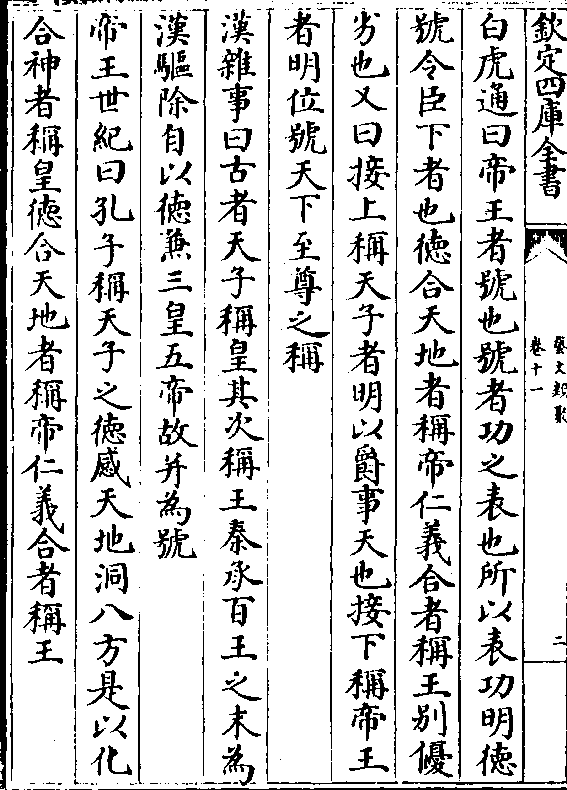 欽定四庫全書
藝文類聚
卷十一
二
白虎通曰帝王者號也號者功之表也所以表功明徳
號令臣下者也徳合天地者稱帝仁義合者稱王别優
劣也又曰接上稱天子者明以爵事天也接下稱帝王
者明位號天下至尊之稱
漢雜事曰古者天子稱皇其次稱王秦承百王之末為
漢驅除自以徳兼三皇五帝故并為號
帝王世紀曰孔子稱天子之徳感天地洞八方是以化
合神者稱皇徳合天地者稱帝仁義合者稱王